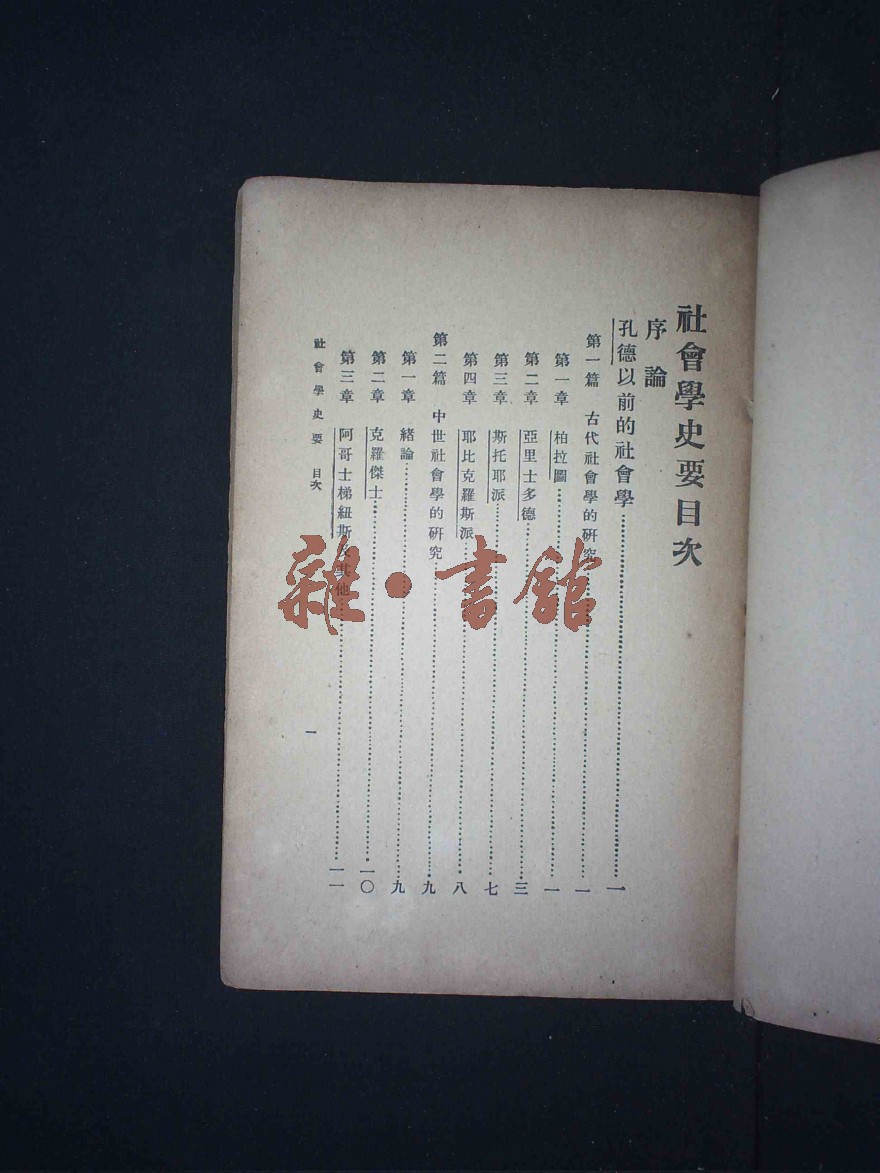 社會學史要目次
序論
孔德以前的社會學……一
第一篇 古代社會學的研究……一
第一章 柏拉圖……一
第二章 亞里士多德……三
第三章 斯托耶派……七
第四章 耶比克羅斯派……八
第二篇 中世社會學的研究……九
第一章 緒論……九
第二章 克羅傑士……一〇
第三章 阿哥士梯紐斯及其他……一一
社會學史要 目次
一
雜·書館